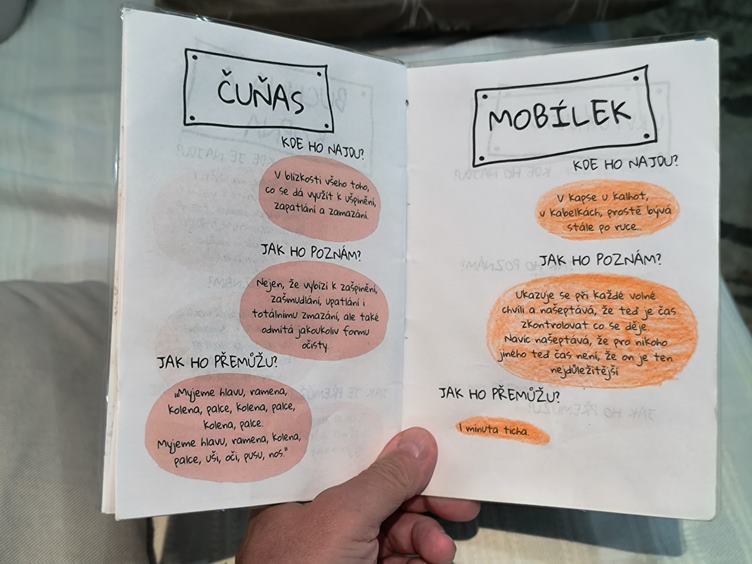 ČUŇAS
KDE HO NAJDU?
V blízkosti všeho toho,
co se dá využít k ušpinění,
zapatlání a zamazání.
JAK HO POZNÁM?
Nejen, že vybízí k zašpinění,
zašmudlání, upatlání i
totálnímu zmazání, ale také
odmítá jakoukoliv formu
očisty.
JAK HO PŘEMŮŽU?
„Myjeme hlavu, ramena,
kolena, palce, kolena, palce,
kolena, palce.
Myjeme hlavu, ramena, kolena,
palce, uši, oči, pusu, nos."
MOBÍLEK
KDE HO NAJDU?
V kapse u kalhot,
v kabelkách, prostě bývá
stále po ruce...
JAK HO POZNÁM?
Ukazuje se při každé volné
chvíli a našeptává, že teď je čas
zkontrolovat co se děje.
Navíc našeptává, že pro nikoho
jiného teď čas není, že on je ten
nejdůležitější
JAK HO PŘEMŮŽU?
1 minuta ticha.